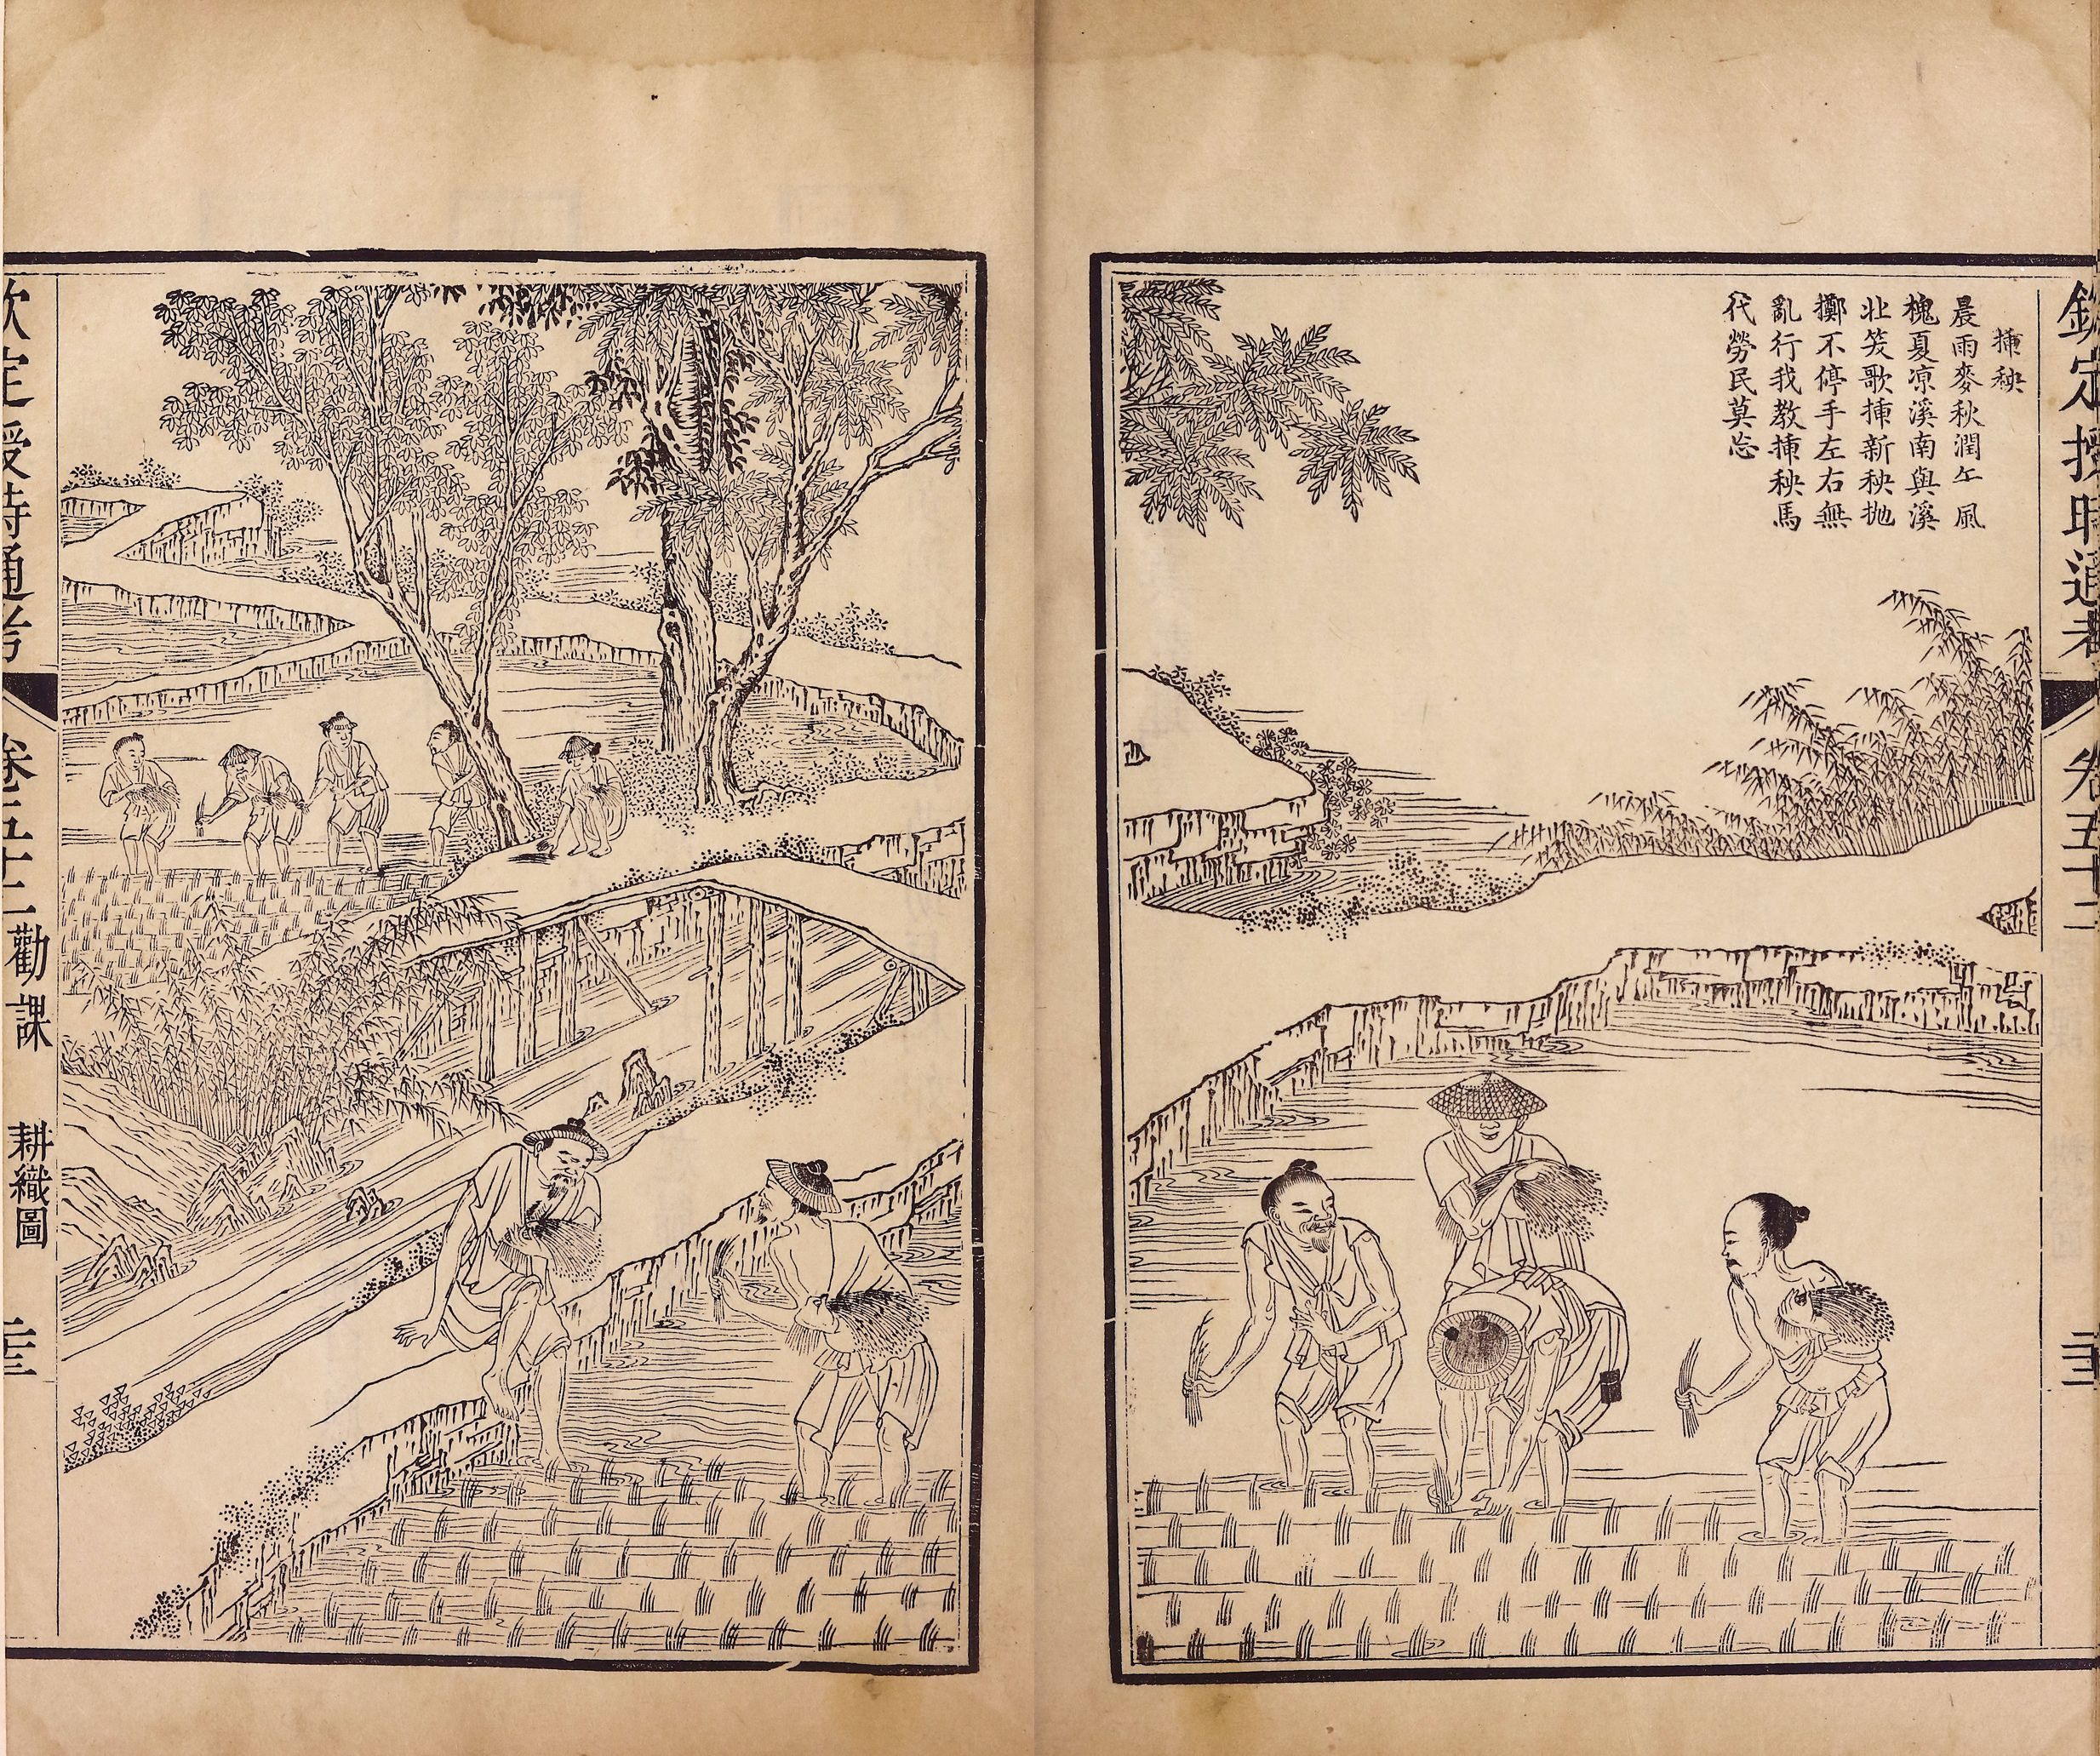 欽定授時通考 卷五十二 二十三
插秧
晨雨麥秋潤午風
槐夏凉溪南與溪
北笑歌插新秧抛
擲不停手左右無
亂行我教插秧馬
代勞民莫忘
欽定授時通考 卷五十二 勸課 耕織圖 二十三